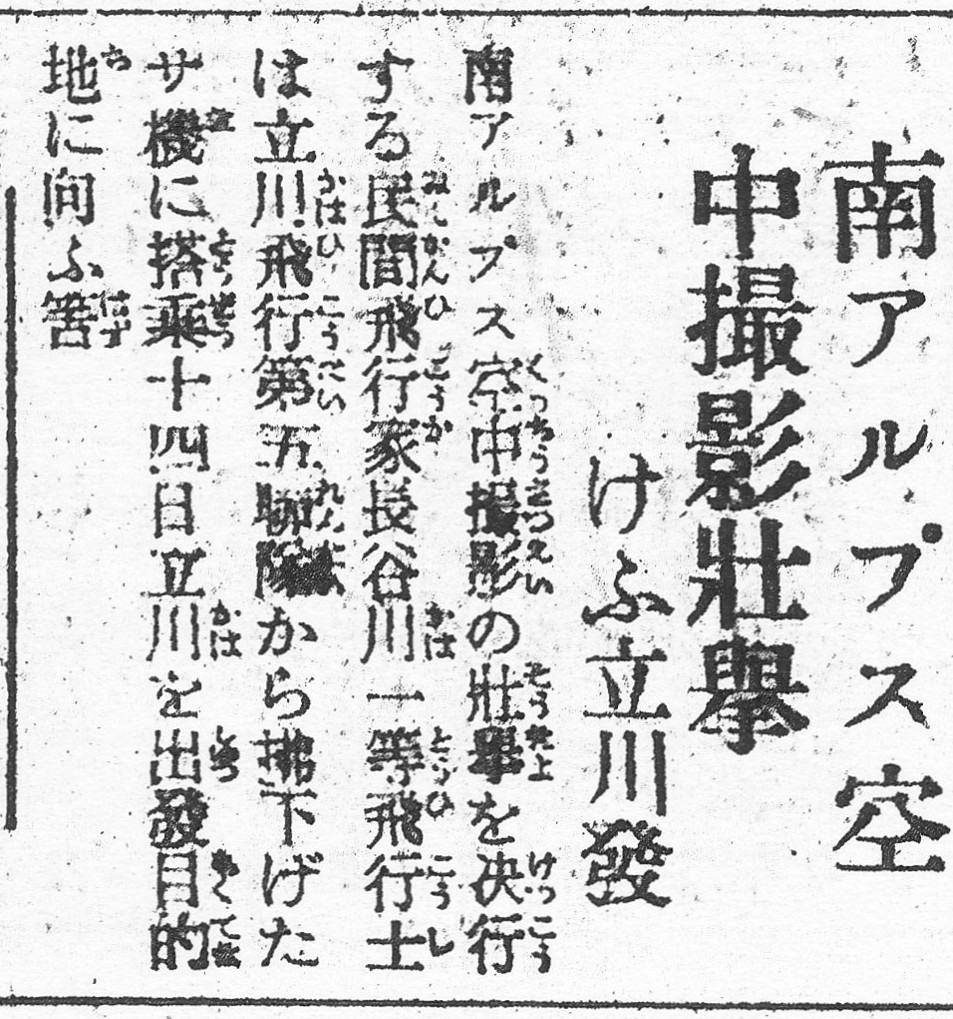 南アルプス空
中撮影壯擧
けふ立川發
南アルプス空中撮影の壯擧を决行
する民間飛行家長谷川一等飛行士
は立川飛行第五聯隊から拂下げた
サ機に搭乘十四日立川を出發目的
地に向ふ筈